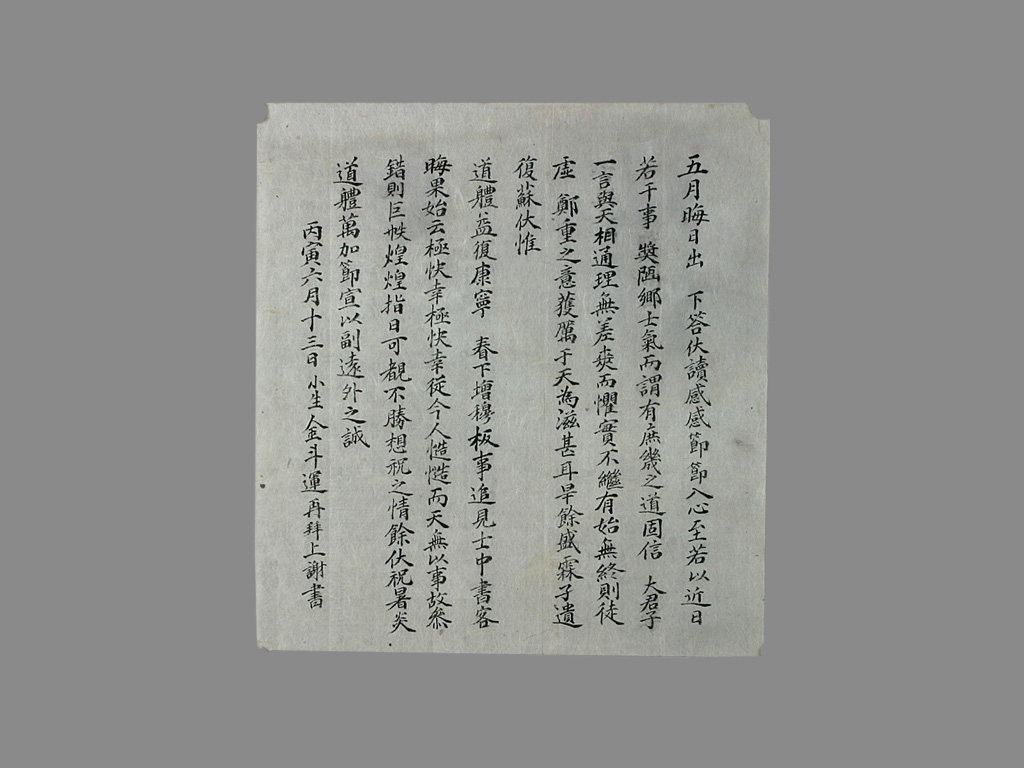 五月晦日出 下答伏讀感感節節入心至若以近日
若干事 奬 鄉士氣而謂有庶幾之道固信 大君子
一言與天相通理無差爽而懼實不繼有始無終則徒
虛 鄭重之意獲厲于天為滋甚耳旱餘盛霖子遺
復蘇伏惟
道體益復康寧 春下增穆板事追見士中書客
晦果始云極快幸極快幸從今人慥慥而天無以事故參
錯則巨帙煌煌指日可覩不勝想祝之情餘伏祝暑炎
道體萬加節宣以副遠外之誠
丙寅六月十三日 小生金斗運再拜上謝書